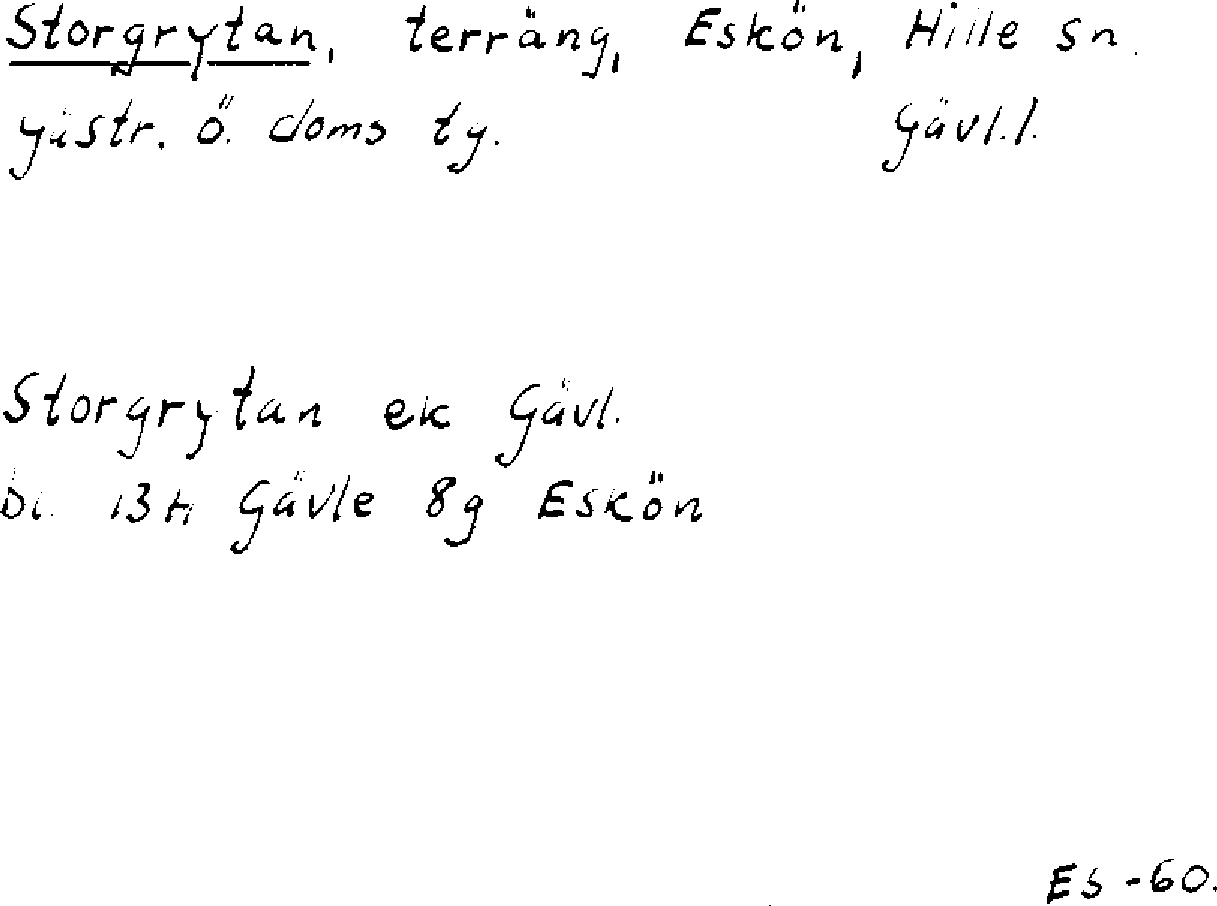 Storgrytan, terräng, Eskön, Hille sn.
gästr. ö. doms tg. Gävl.l.
Storgrytan ek Gävl.
bl. 13H Gävle 8g Eskön
ES -60.